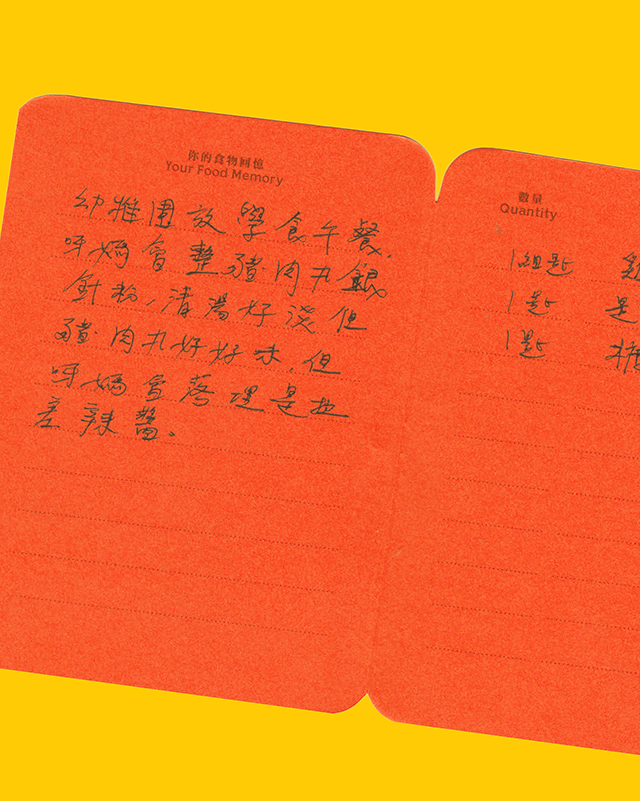 你的食物回憶
Your Food Memory
幼稚園放學食午餐,
呀媽會整豬肉丸銀
針粉,清湯好淡,但
豬肉丸好好味,但
呀媽會落埋是拉
差辣醬。
數量
Quantity
1匙 是
1匙 糖